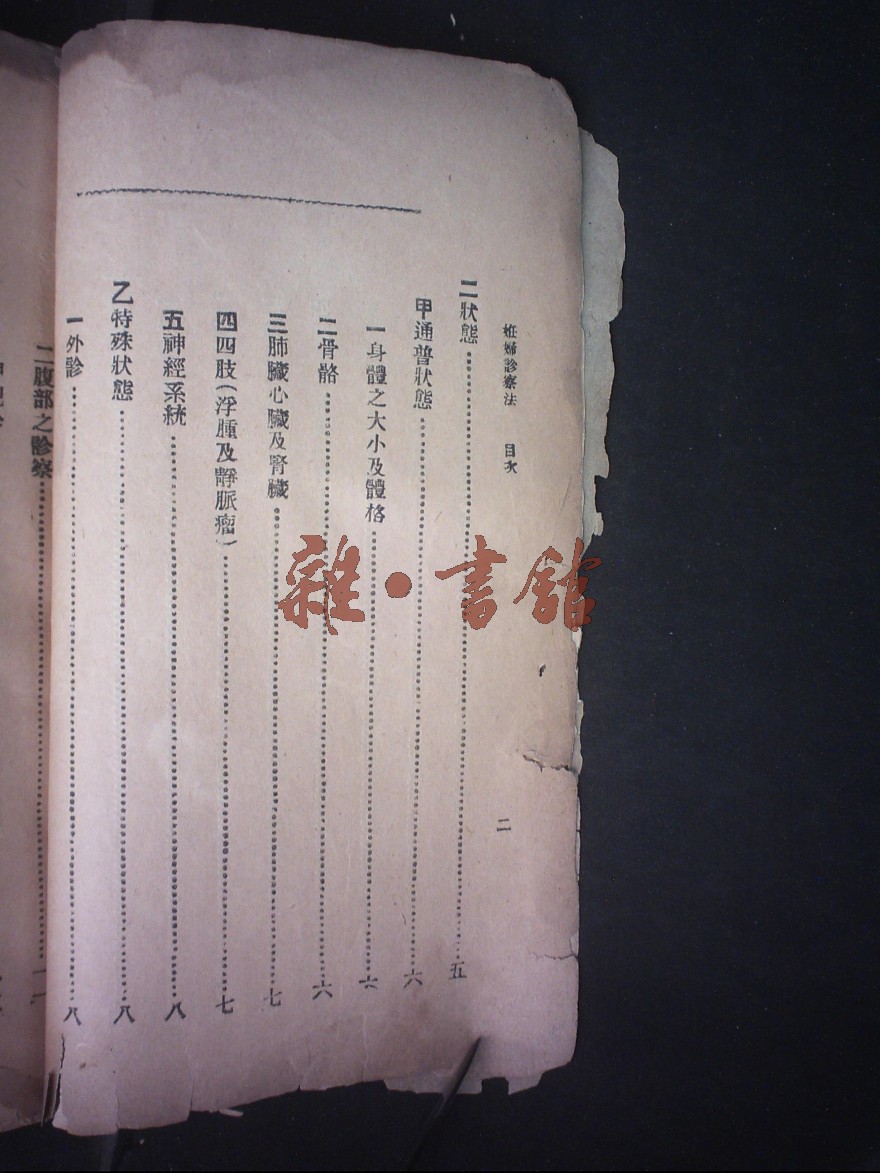 妊婦診察法　目次　二
二狀態……五
甲通普狀態……六
一身體之大小及體格……六
二骨骼……六
三肺臟心臟及腎臟……七
四四肢(浮腫及靜脈瘤)……七
五神經系統……八
乙特殊狀態……八
一外診……八
二腹部之診察……
雜·書館